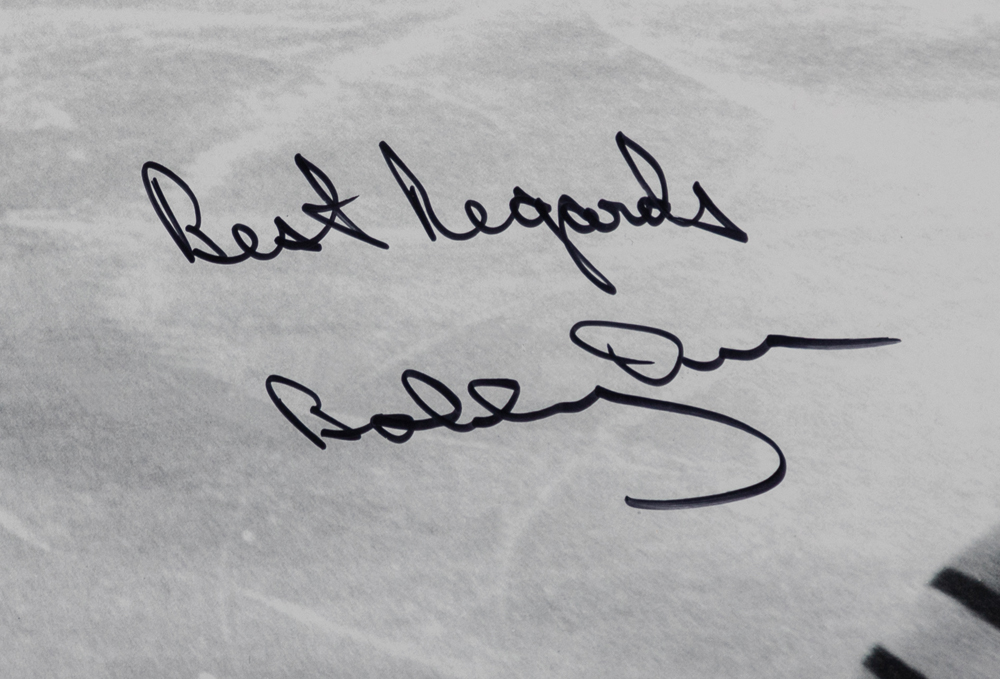 Best Regards
Bobby Orr